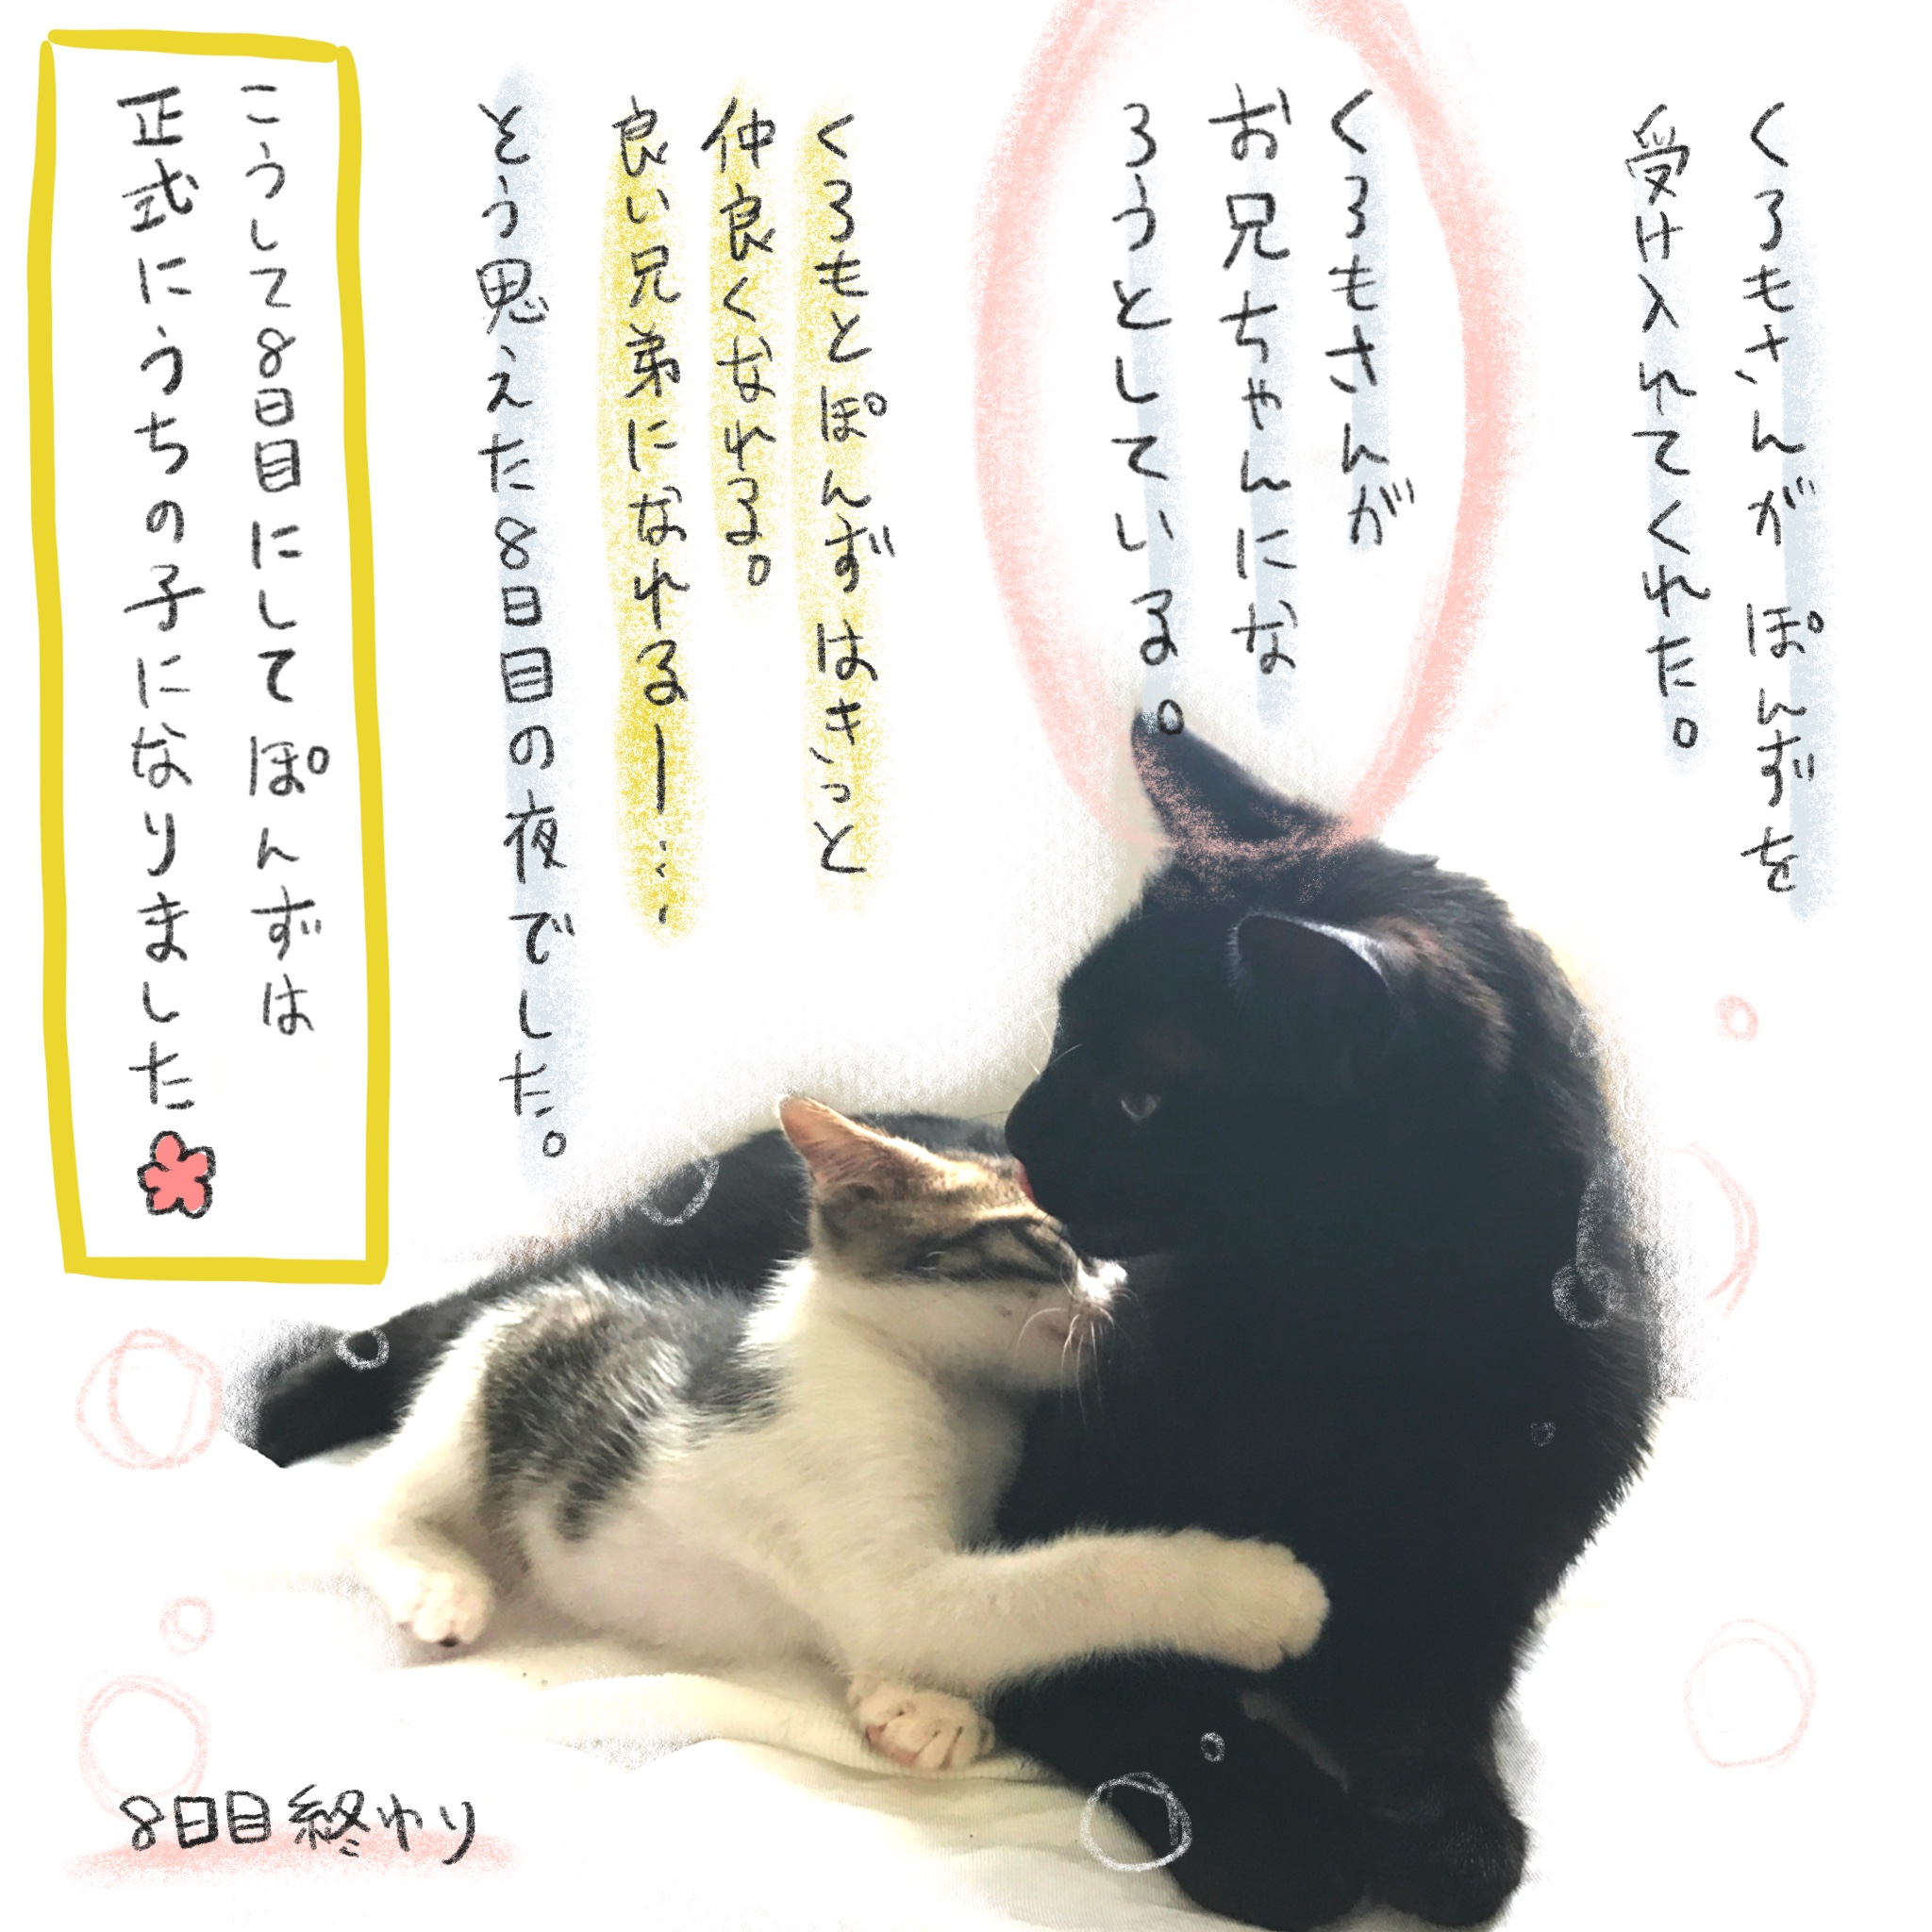 くろもさんがぽんずを
受け入れてくれた。
くろもさんが
お兄ちゃんにな
ろうとしている。
くろもとぽんずはきっと
仲良くなれる。
良い兄弟になれるー…
そう思えた8日目の夜でした。
こうして8日目にしてぽんずは
正式にうちの子になりました
8日目終わり